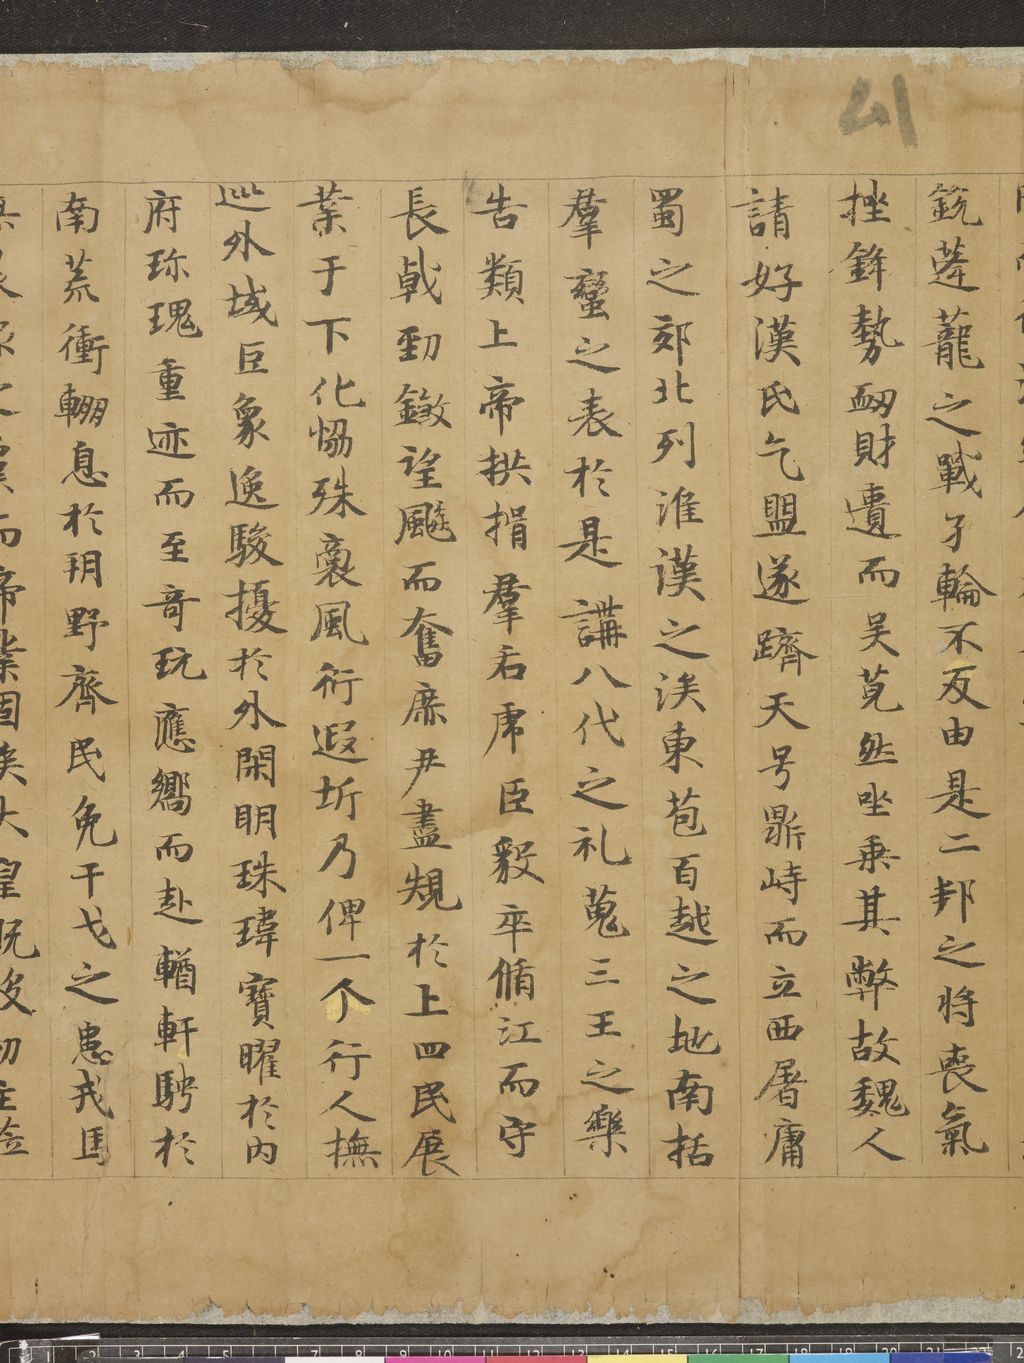 銃蓬蘢之戰孑輪不反由是二邦之将喪氣
挫鋒勢衂財遺而吴莧然坐乗其弊故魏人
請好漢氏乞盟遂躋天号鼎峙而立西屠庸
蜀之郊北列淮漢之涘東苞百越之地南括
羣蠻之表於是講八代之礼蒐三王之樂
告類上帝拱揖羣后虎臣毅卒脩江而守
長戟勁鎩望飈而奮庶尹盡規於上四民展
業于下化恊殊裔風衍遐圻乃俾一个行人撫
巡外域臣象逸駿擾於外閑明珠瑋寶曜於内
府珎瑰重迹而至奇玩應嚮而赴輶軒騁於
南荒衝輣息於朔野齊民免干戈之患戎馬
而帝業固矣大皇既没幼主莅